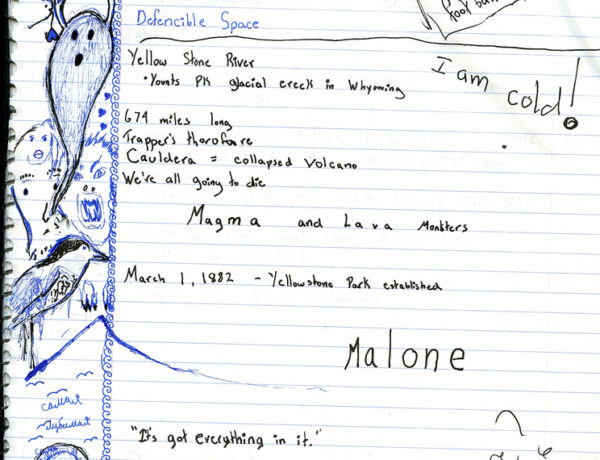 Defencible Space
Yellow Stone River
I am cold!
• Younts PK glacial creek in Whyoming
674 miles long
Trapper's thorofare
Cauldera = collapsed volcano
We're all going to die
Magma and Lava Monsters
March 1, 1882 - Yellowstone Park established
Malone
самая
любимая
"It's got everything in it."